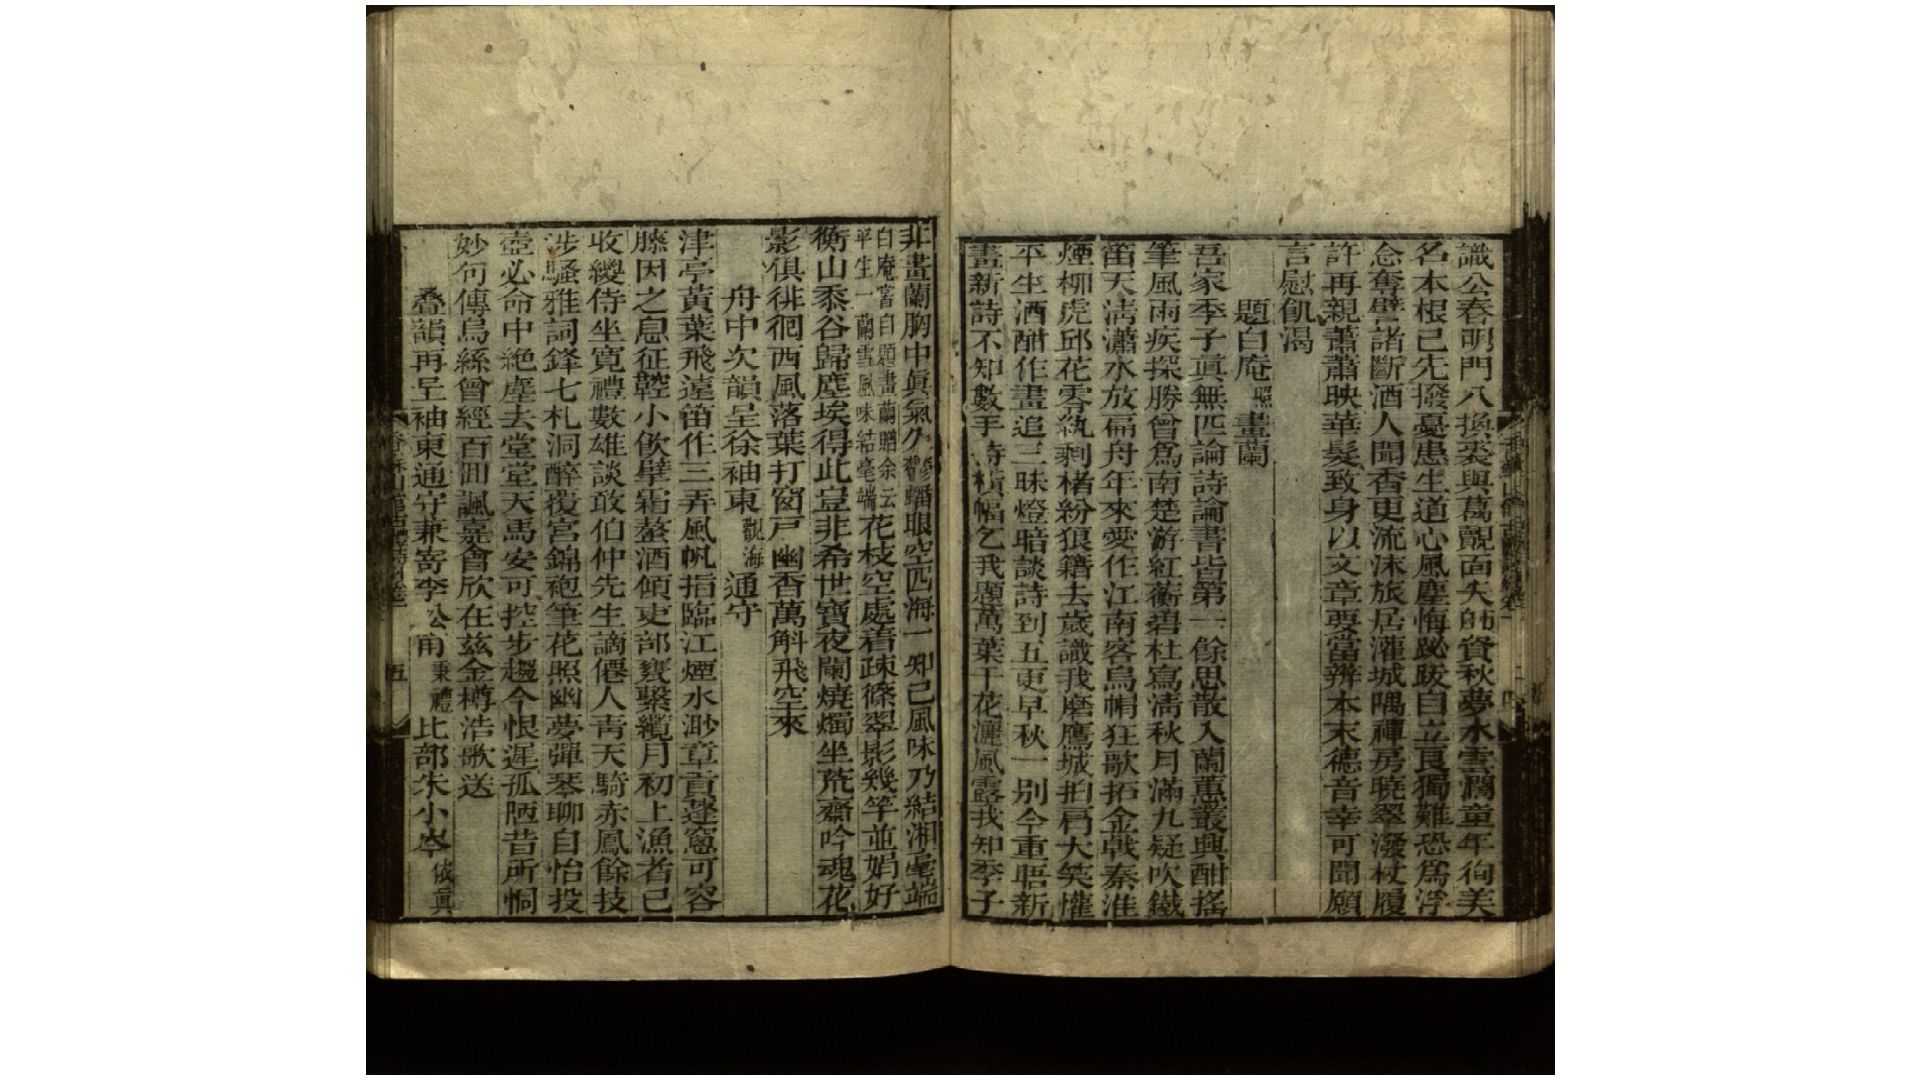 識公春明門八換裘與葛覿面失師資秋夢水雲濶童年徇美
名本根已先撥憂患生道心風塵悔跋跋自立良獨難恐爲浮
念奪譬諸斷酒人聞香更流沫旅居灌城隅禪房曉翠潑杖履
許再親蕭蕭映華髮致身以文章要當辨本末德音幸可聞願
言慰飢渴
題白庵照畫蘭
吾家季子眞無匹論詩論書皆第一餘思散入蘭蕙叢興酣搖
筆風雨疾探勝曾爲南楚游紅蘅碧杜寫清秋月滿九疑吹鐵
笛天清瀟水放扁舟年來愛作江南客烏帽狂歌拓金戟秦淮
煙柳虎邱花零紈剩楮紛狼籍去歲識我磨鷹城拍肩大笑懽
平生酒酣作畫追三昧燈暗談詩到五更早秋一別今重晤新
畫新詩不知數手持橫幅乞我題萬葉千花灑風露我知季子
非畫蘭胸中眞氣久鬱蟠眼空四海一知己風味乃結湘毫端
白庵嘗自題畫蘭贈余云
平生一蘭雪風味結毫端
花枝空處着疎篠翠影幾竿並娟好
衡山黍谷歸塵埃得此豈非希世寶夜闌燒燭坐荒齋吟魂花
影俱徘徊西風落葉打窗戸幽香萬斛飛空來
舟中次韻呈徐袖東觀海通守
津亭黃葉飛遠笛作三弄風帆指臨江煙水渺章貢蓬窻可容
膝因之息征鞚小飲擘霜螯酒傾吏部甕繫纜月初上漁者已
收緵侍坐寬禮數雄談敢伯仲先生謫僊人靑天騎赤鳳餘技
涉騷雅詞鋒七札洞醉覆宮錦袍筆花照幽夢彈琴聊自怡投
壺必命中絶塵去堂堂天馬安可控步趨今恨遲孤陋昔所恫
妙句傳烏絲曾經百囘諷嘉會欣在茲金樽浩歌送
叠韻再呈袖東通守兼寄李松甫秉禮比部朱小岑依眞
五